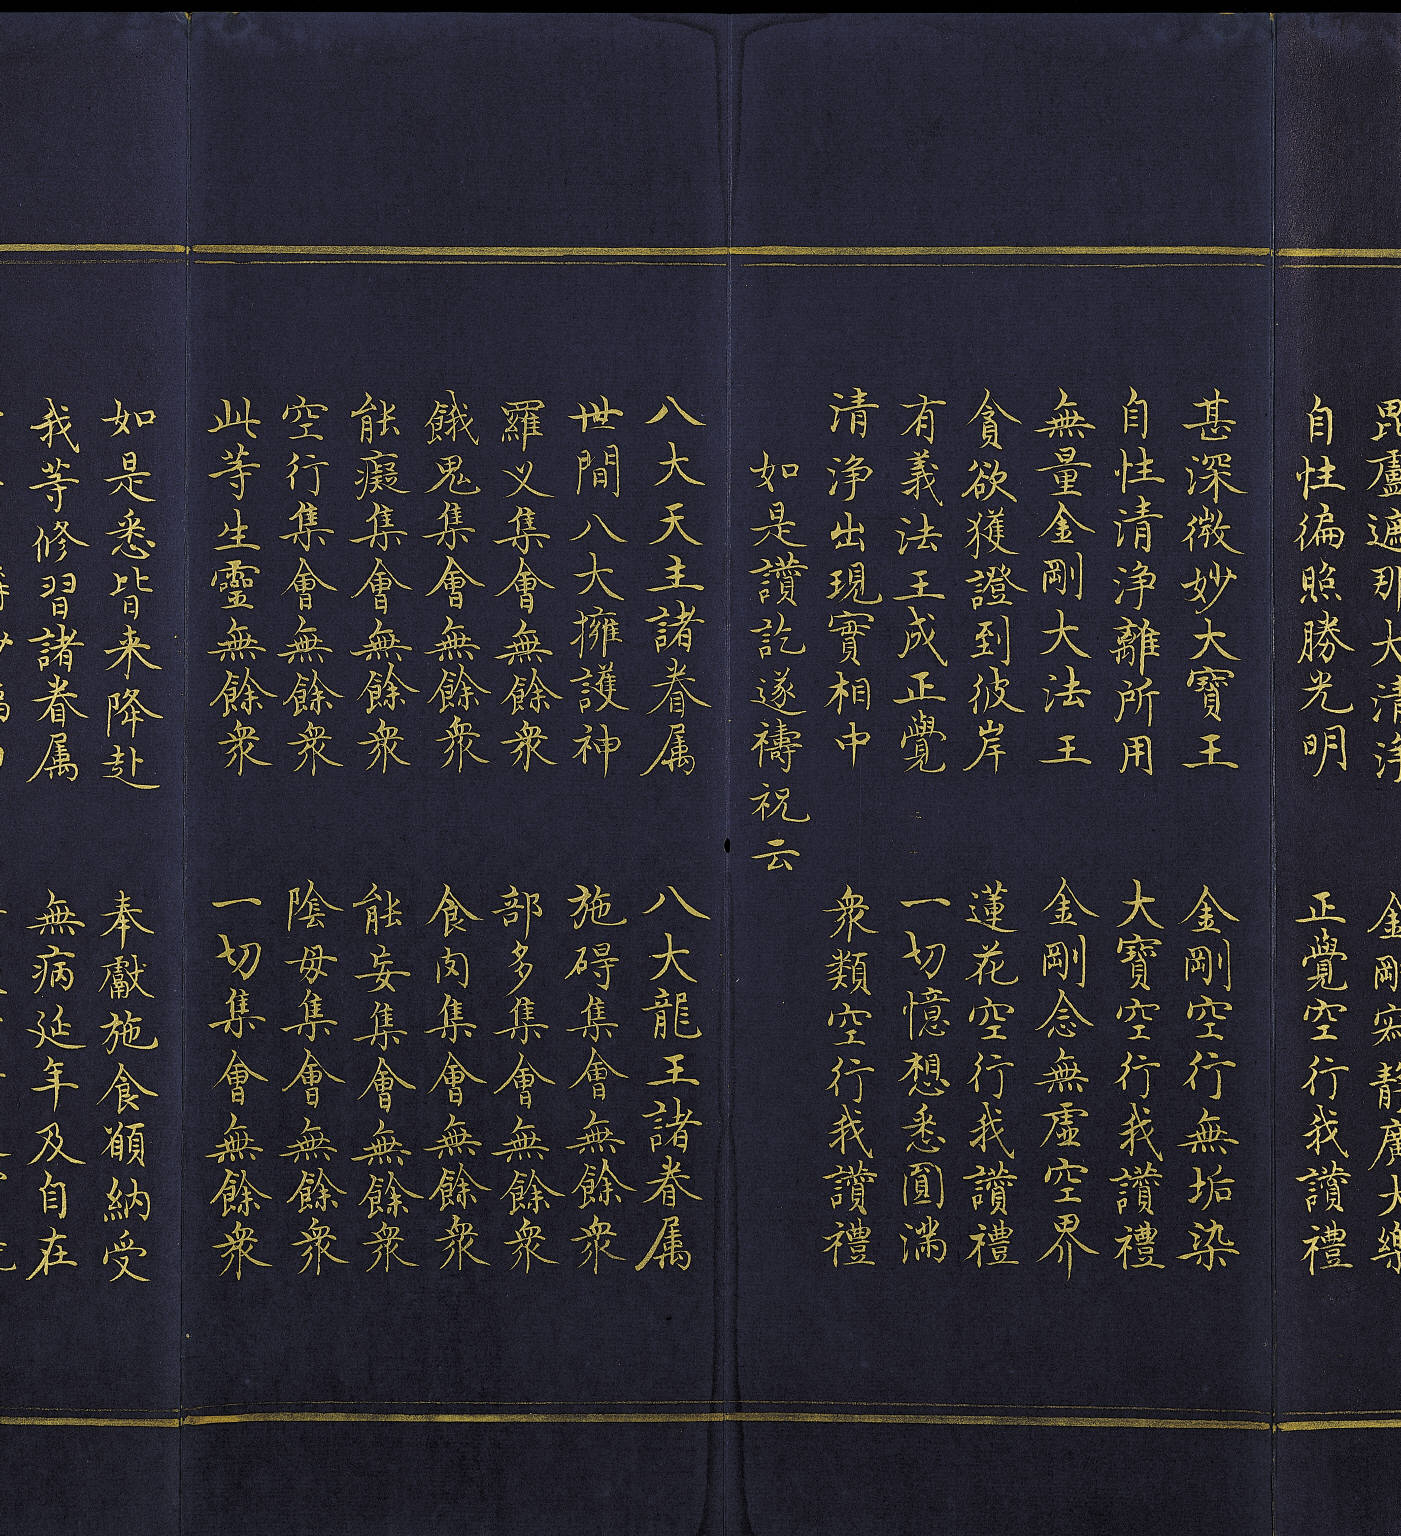 毘盧遮那大清淨　金剛寂静廣大樂
自性徧照勝光明　正覺空行我讚禮
甚深微妙大寶王　金剛空行無垢染
自性清浄離所用　大寶空行我讚禮
無量金剛大法王　金剛念無虛空界
貪欲獲證到彼岸　蓮花空行我讚禮
有義法王成正覺　一切憶想悉圓滿
清浄出現實相中　衆類空行我讚禮
如是讚訖遂禱祝云
八大天主諸眷属　八大龍王諸眷属
世間八大擁護神　施碍集會無餘衆
羅义集會無餘衆　部多集會無餘衆
餓鬼集會無餘衆　食肉集會無餘衆
能癡集會無餘衆　能妄集會無餘衆
空行集會無餘衆　陰母集會無餘衆
此等生靈無餘衆　一切集會無餘衆
如是悉皆来降赴　奉獻施食願納受
我等修習諸眷属　無病延年及自在